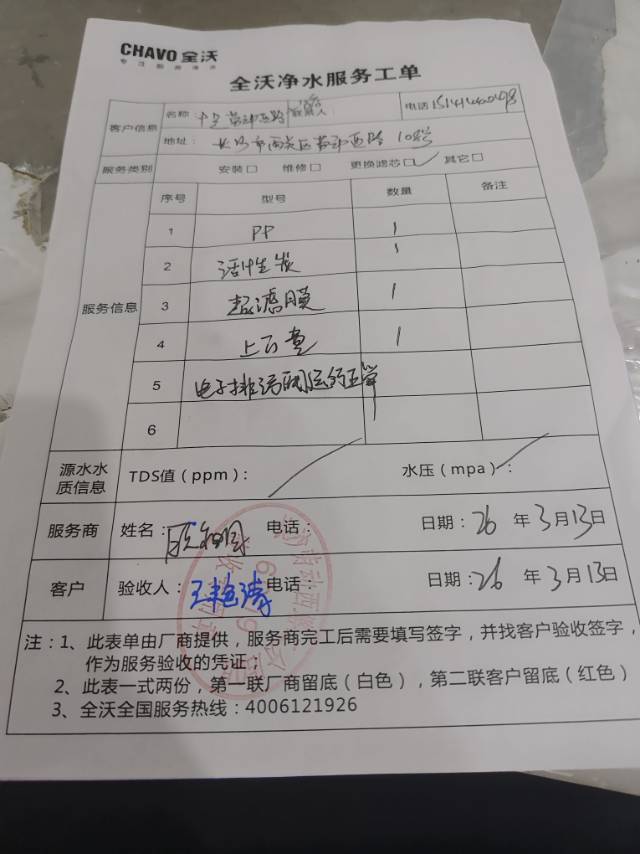 CHAVO 全沃
专注厨房净水
全沃净水服务工单
客户信息
名称
联系人
电话
地址:
服务类别
安装□ 维修□ 更换滤芯□✓ 其它□
服务信息
序号 型号 数量 备注
1 PP 1
2 活性炭 1
3 超滤膜 1
4 1
5
6
源水水质信息
TDS值(ppm): 水压(mpa):
服务商 姓名: 电话: 日期:26年3月13日
客户 验收人:王艳涛 电话: 日期:26年3月13日
注:1、此表单由厂商提供,服务商完工后需要填写签字,并找客户验收签字,
作为服务验收的凭证;
2、此表一式两份,第一联厂商留底(白色),第二联客户留底(红色)
3、全沃全国服务热线:4006121926